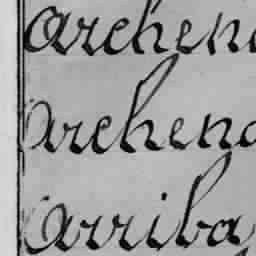 archeno
archeno
arriba